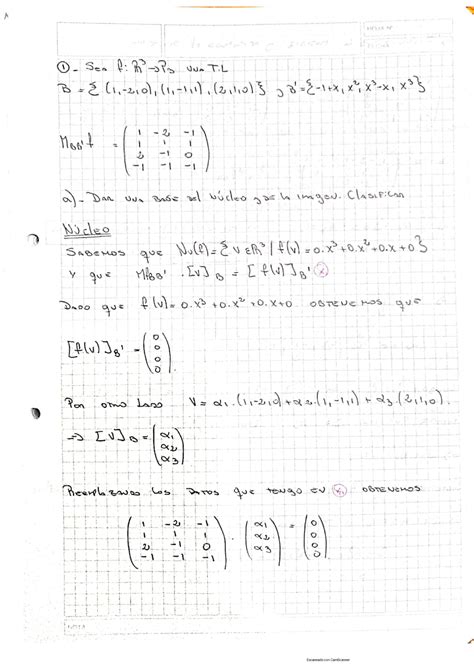 ① - Sea f: ℝ³ → P₃ una T.L
B = { (1,-2,0), (1,-1,1), (2,1,0) } , B' = {-1+x, x², x³-x, x³}
M_BB' f = ( 1 -2 -1
1 1 1
2 -1 0
-1 -1 -1 )
a) - Dar una base del núcleo y de la imagen. Clasificar
Núcleo
Sabemos que Nu(f) = { v ∈ ℝ³ / f(v) = 0.x³+0.x²+0.x+0 }
y que M_BB' . [v]_B = [f(v)]_B' ⊛
Dado que f(v) = 0.x³+0.x²+0.x+0 obtenemos que
[f(v)]_B' = ( 0
0
0
0 )
Por otro lado v = α₁.(1,-2,0) + α₂.(1,-1,1) + α₃.(2,1,0)
⇒ [v]_B = ( α₁
α₂
α₃ )
Reemplazando los datos que tengo en ⊛ obtenemos
( 1 -2 -1
1 1 1
2 -1 0
-1 -1 -1 ) . ( α₁
α₂
α₃ ) = ( 0
0
0
0 )
NOTA
Escaneado con CamScanner